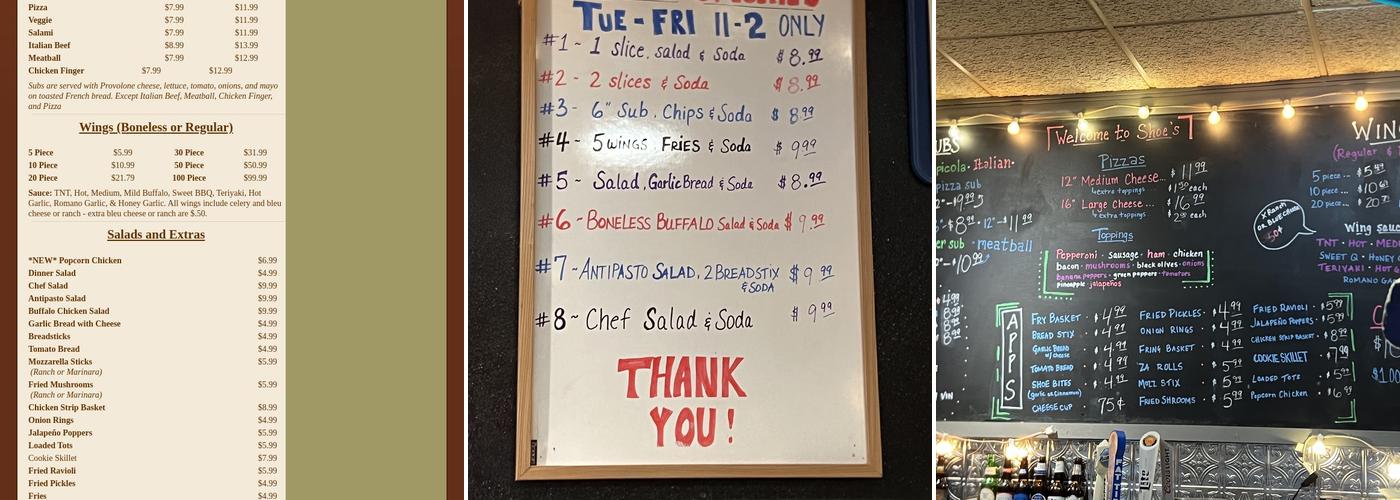 Pizza $7.99 $11.99
Veggie $7.99 $11.99
Salami $7.99 $11.99
Italian Beef $8.99 $13.99
Meatball $7.99 $12.99
Chicken Finger $7.99 $12.99
Subs are served with Provolone cheese, lettuce, tomato, onions, and mayo
on toasted French bread. Except Italian Beef, Meatball, Chicken Finger,
and Pizza
Wings (Boneless or Regular)
5 Piece $5.99 30 Piece $31.99
10 Piece $10.99 50 Piece $50.99
20 Piece $21.79 100 Piece $99.99
Sauce: TNT, Hot, Medium, Mild Buffalo, Sweet BBQ, Teriyaki, Hot
Garlic, Romano Garlic, & Honey Garlic. All wings include celery and bleu
cheese or ranch - extra bleu cheese or ranch are $.50.
Salads and Extras
*NEW* Popcorn Chicken $6.99
Dinner Salad $4.99
Chef Salad $9.99
Antipasto Salad $9.99
Buffalo Chicken Salad $9.99
Garlic Bread with Cheese $4.99
Breadsticks $4.99
Tomato Bread $4.99
Mozzarella Sticks $5.99
(Ranch or Marinara)
Fried Mushrooms $5.99
(Ranch or Marinara)
Chicken Strip Basket $8.99
Onion Rings $4.99
Jalapeño Poppers $5.99
Loaded Tots $5.99
Cookie Skillet $7.99
Fried Ravioli $5.99
Fried Pickles $4.99
Fries $4.99
TUE - FRI 11-2 ONLY
#1 ~ 1 slice, salad & Soda $8.99
#2 - 2 slices & Soda $8.99
#3 - 6" Sub, Chips & Soda $8.99
#4 - 5 WINGS, FRIES & Soda $9.99
#5 - Salad, Garlic Bread & Soda $8.99
#6 - BONELESS BUFFALO Salad & Soda $9.99
#7 - ANTIPASTO SALAD, 2 BREADSTIX $9.99
& SODA
#8 ~ Chef Salad & Soda $9.99
THANK
YOU!
Welcome to Shoe's
Pizzas
12" Medium Cheese... $11.99
extra toppings $1.50 each
16" Large Cheese.... $16.99
extra toppings each
Toppings
Pepperoni · Sausage · ham · chicken
bacon · mushrooms · black olives · onions
banana peppers · green peppers · tomatoes
pineapple · jalapeños
UBS
picola · Italian·
pizza sub
12"-$11.99
er sub · meatball
XRanch
OR BLEU CHEESE
50¢
WIN
(Regular
5 piece...
10 piece...
20 piece..
Wing sauc
TNT · HOT · MED
SWEET Q · HONEY
TERIYAKI · HOT
ROMANO GA
APPS
FRY BASKET · $4.99
BREAD STIX · $4.99
GARLIC BREAD w/ cheese · $4.99
TOMATO BREAD · $4.99
SHOE BITES · $4.99
(garlic or Cinnamon)
CHEESE CUP 75¢
FRIED PICKLES · $4.99
ONION RINGS · $4.99
FRING BASKET · $4.99
ZA ROLLS · $5.99
MOZZ STIX · $5.99
FRIED SHROOMS · $5.99
FRIED RAVIOLI · $5.99
JALAPEÑO POPPERS · $5.99
CHICKEN STRIP BASKET · $8.99
COOKIE SKILLET · $7.99
LOADED TOTS · $5.99
Popcorn Chicken · $6.99
$1.00
Lite